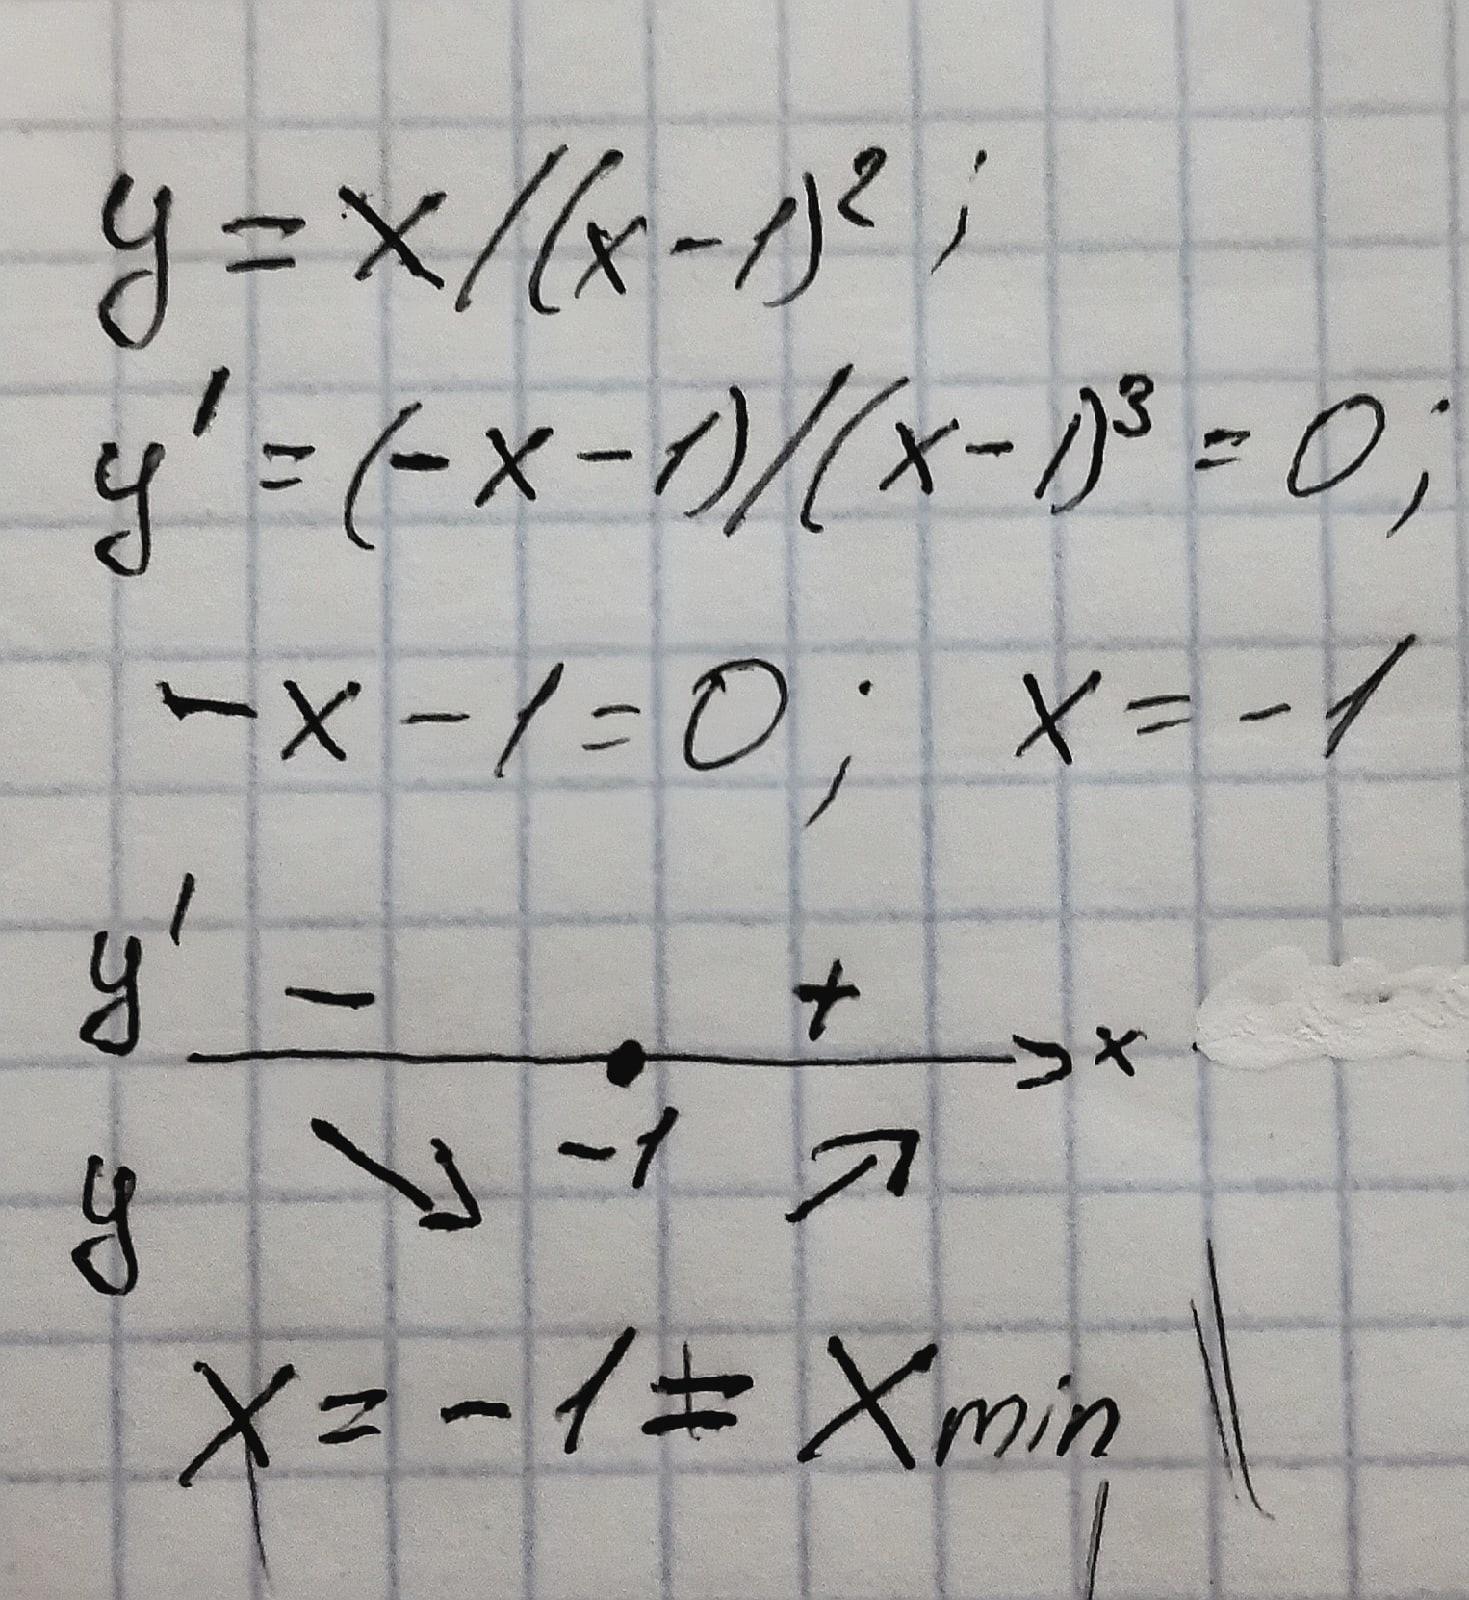 y = x/(x-1)² ;
y' = (-x-1)/(x-1)³ = 0;
-x-1=0; x=-1
y' - +
x
-1
y
x=-1≠Xmin